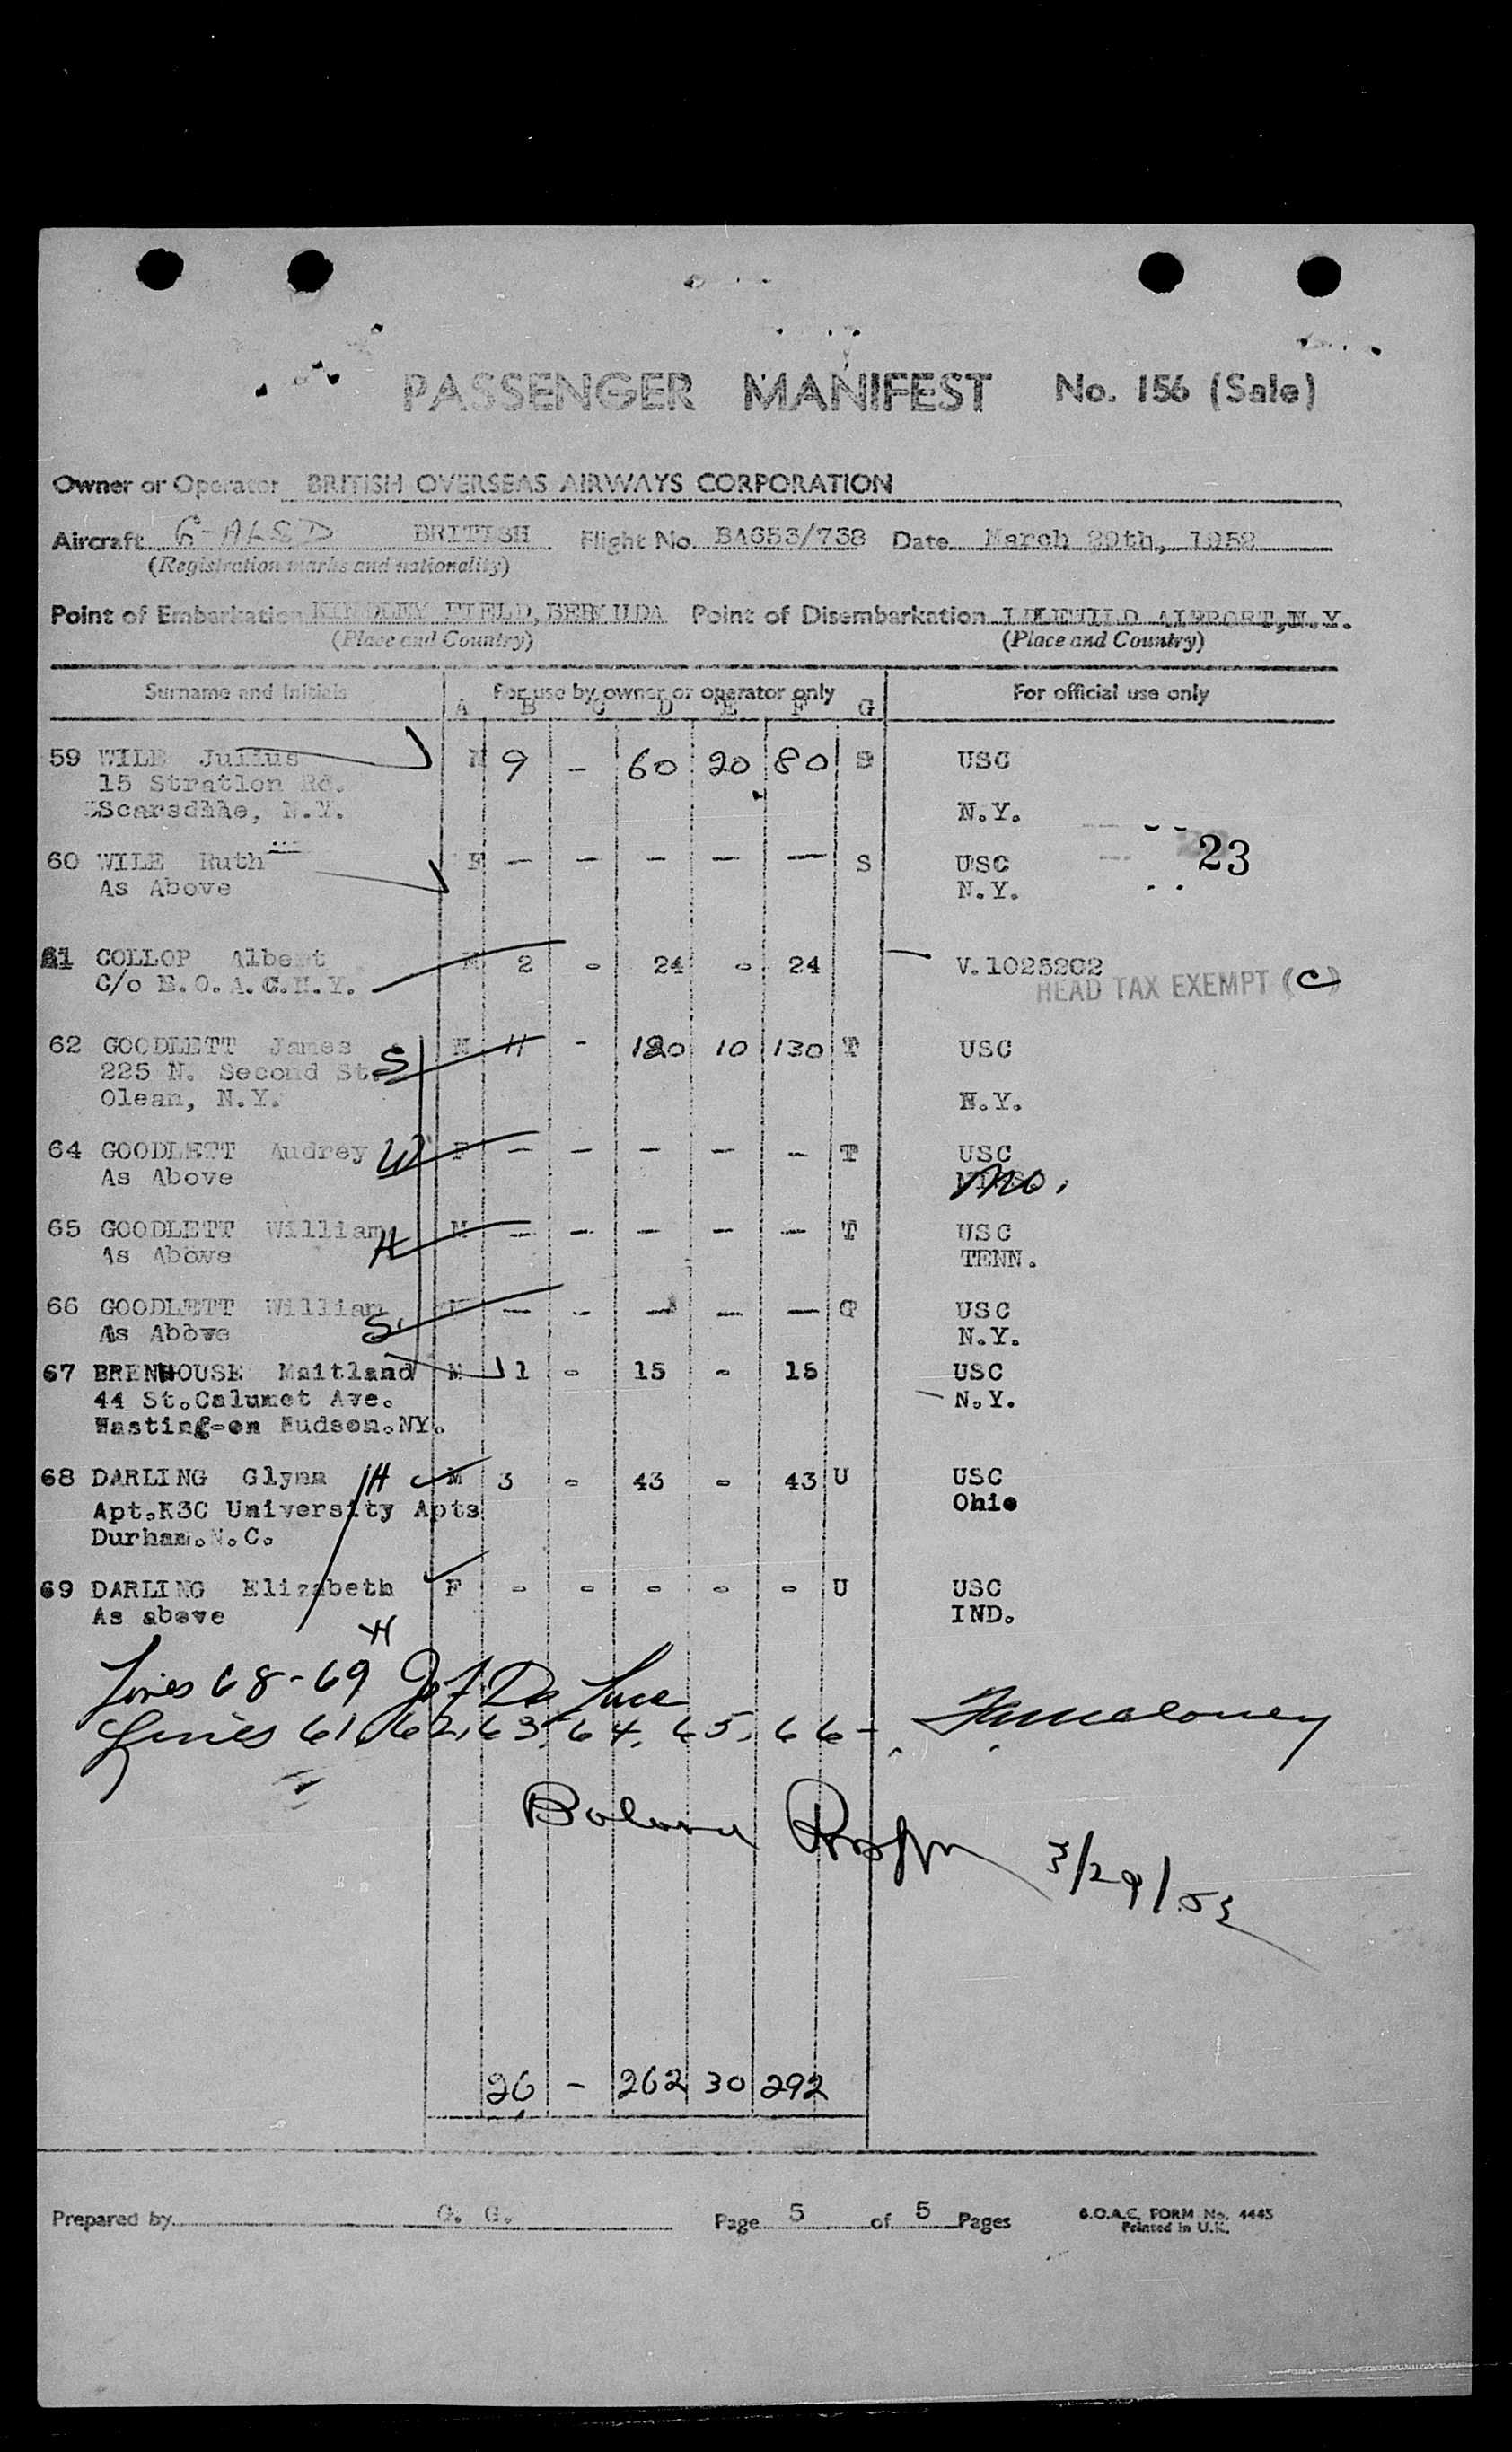 PASSENGER MANIFEST No. 156 (Sale)
Owner or Operator BRITISH OVERSEAS AIRWAYS CORPORATION
Aircraft G-ALSD BRITISH Flight No. BA653/738 Date March 29th, 1952
(Registration marks and nationality)
Point of Embarkation KINDLEY FIELD, BERMUDA Point of Disembarkation IDLEWILD AIRPORT, N.Y.
(Place and Country) (Place and Country)
Surname and Initials For use by owner or operator only For official use only
A B C D E F G
59 WILE Julius M 9 - 60 20 80 S USC
15 Stratlon Rd.
Scarsdhle, N.Y. N.Y.
23
60 WILE Ruth F - - - - - S USC
As Above N.Y.
61 COLLOP Albert M 2 - 24 - 24 V.1025202
C/o B.O.A.C.N.Y. HEAD TAX EXEMPT (C)
62 GOODLETT James S M 11 - 120 10 130 T USC
225 N. Second St.
Olean, N.Y. N.Y.
64 GOODLETT Audrey W F - - - - - T USC
As Above Mo.
65 GOODLETT William H M - - - - - T USC
As Above TENN.
66 GOODLETT William S - - - - - USC
As Above N.Y.
67 BRENHOUSE Maitland M 1 - 15 - 15 USC
44 St.Calumet Ave. N.Y.
Hasting-on Hudson.NY.
68 DARLING Glynn H M 3 - 43 - 43 U USC
Apt.K3C University Apts Ohio
Durham.N.C.
69 DARLING Elizabeth F - - - - - U USC
As above IND.
Lines 68-69 De Luca
Lines 61,62,63,64,65,66- Maloney
3/29/52
26 - 262 30 292
Prepared by G. G. Page 5 of 5 Pages B.O.A.C. FORM No. 4445
Printed in U.K.